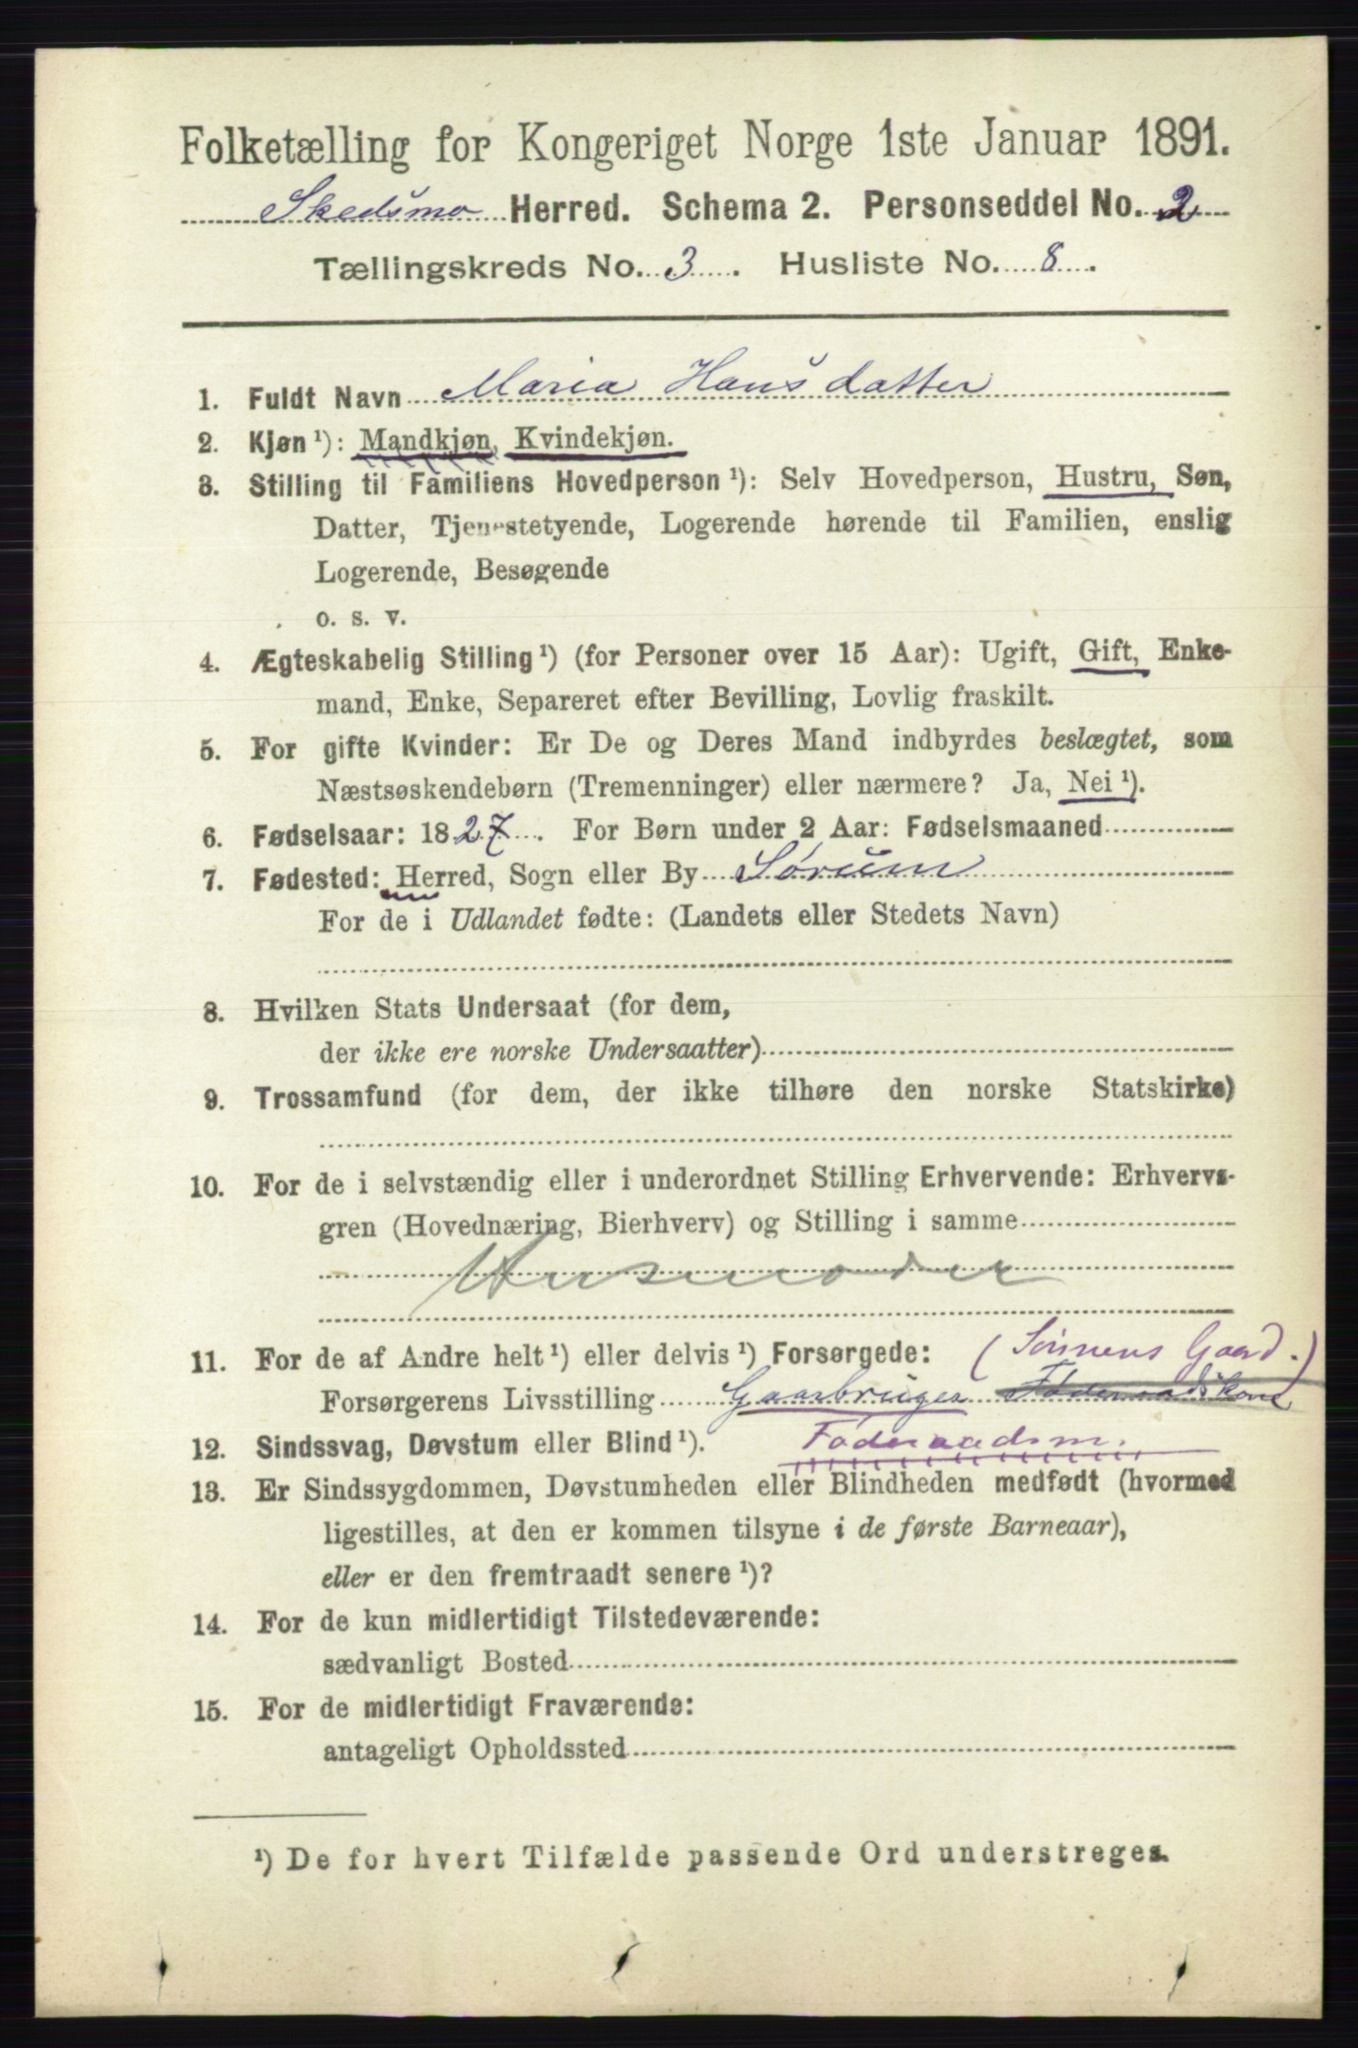 Folketælling for Kongeriget Norge 1ste Januar 1891.
Skedsmo Herred. Schema 2. Personseddel No. 2
Tællingskreds No. 3. Husliste No. 8.
1. Fuldt Navn Maria Hansdatter
2. Kjøn ¹): Mandkjøn, Kvindekjøn.
3. Stilling til Familiens Hovedperson ¹): Selv Hovedperson, Hustru, Søn,
Datter, Tjenestetyende, Logerende hørende til Familien, enslig
Logerende, Besøgende
o. s. v.
4. Ægteskabelig Stilling ¹) (for Personer over 15 Aar): Ugift, Gift, Enke-
mand, Enke, Separeret efter Bevilling, Lovlig fraskilt.
5. For gifte Kvinder: Er De og Deres Mand indbyrdes beslægtet, som
Næstsøskendebørn (Tremenninger) eller nærmere? Ja, Nei ¹).
6. Fødselsaar: 1827. For Børn under 2 Aar: Fødselsmaaned
7. Fødested: Herred, Sogn eller By Sørum
For de i Udlandet fødte: (Landets eller Stedets Navn)
8. Hvilken Stats Undersaat (for dem,
der ikke ere norske Undersaatter)
9. Trossamfund (for dem, der ikke tilhøre den norske Statskirke)
10. For de i selvstændig eller i underordnet Stilling Erhvervende: Erhvervs-
gren (Hovednæring, Bierhverv) og Stilling i samme
Husmoder
11. For de af Andre helt ¹) eller delvis ¹) Forsørgede: (Sønnens Gaard.)
Forsørgerens Livsstilling Gaarbruger Føderaadskone
12. Sindssvag, Døvstum eller Blind ¹). Føderaadsm.
13. Er Sindssygdommen, Døvstumheden eller Blindheden medfødt (hvormed
ligestilles, at den er kommen tilsyne i de første Barneaar),
eller er den fremtraadt senere ¹)?
14. For de kun midlertidigt Tilstedeværende:
sædvanligt Bosted
15. For de midlertidigt Fraværende:
antageligt Opholdssted
¹) De for hvert Tilfælde passende Ord understreges.